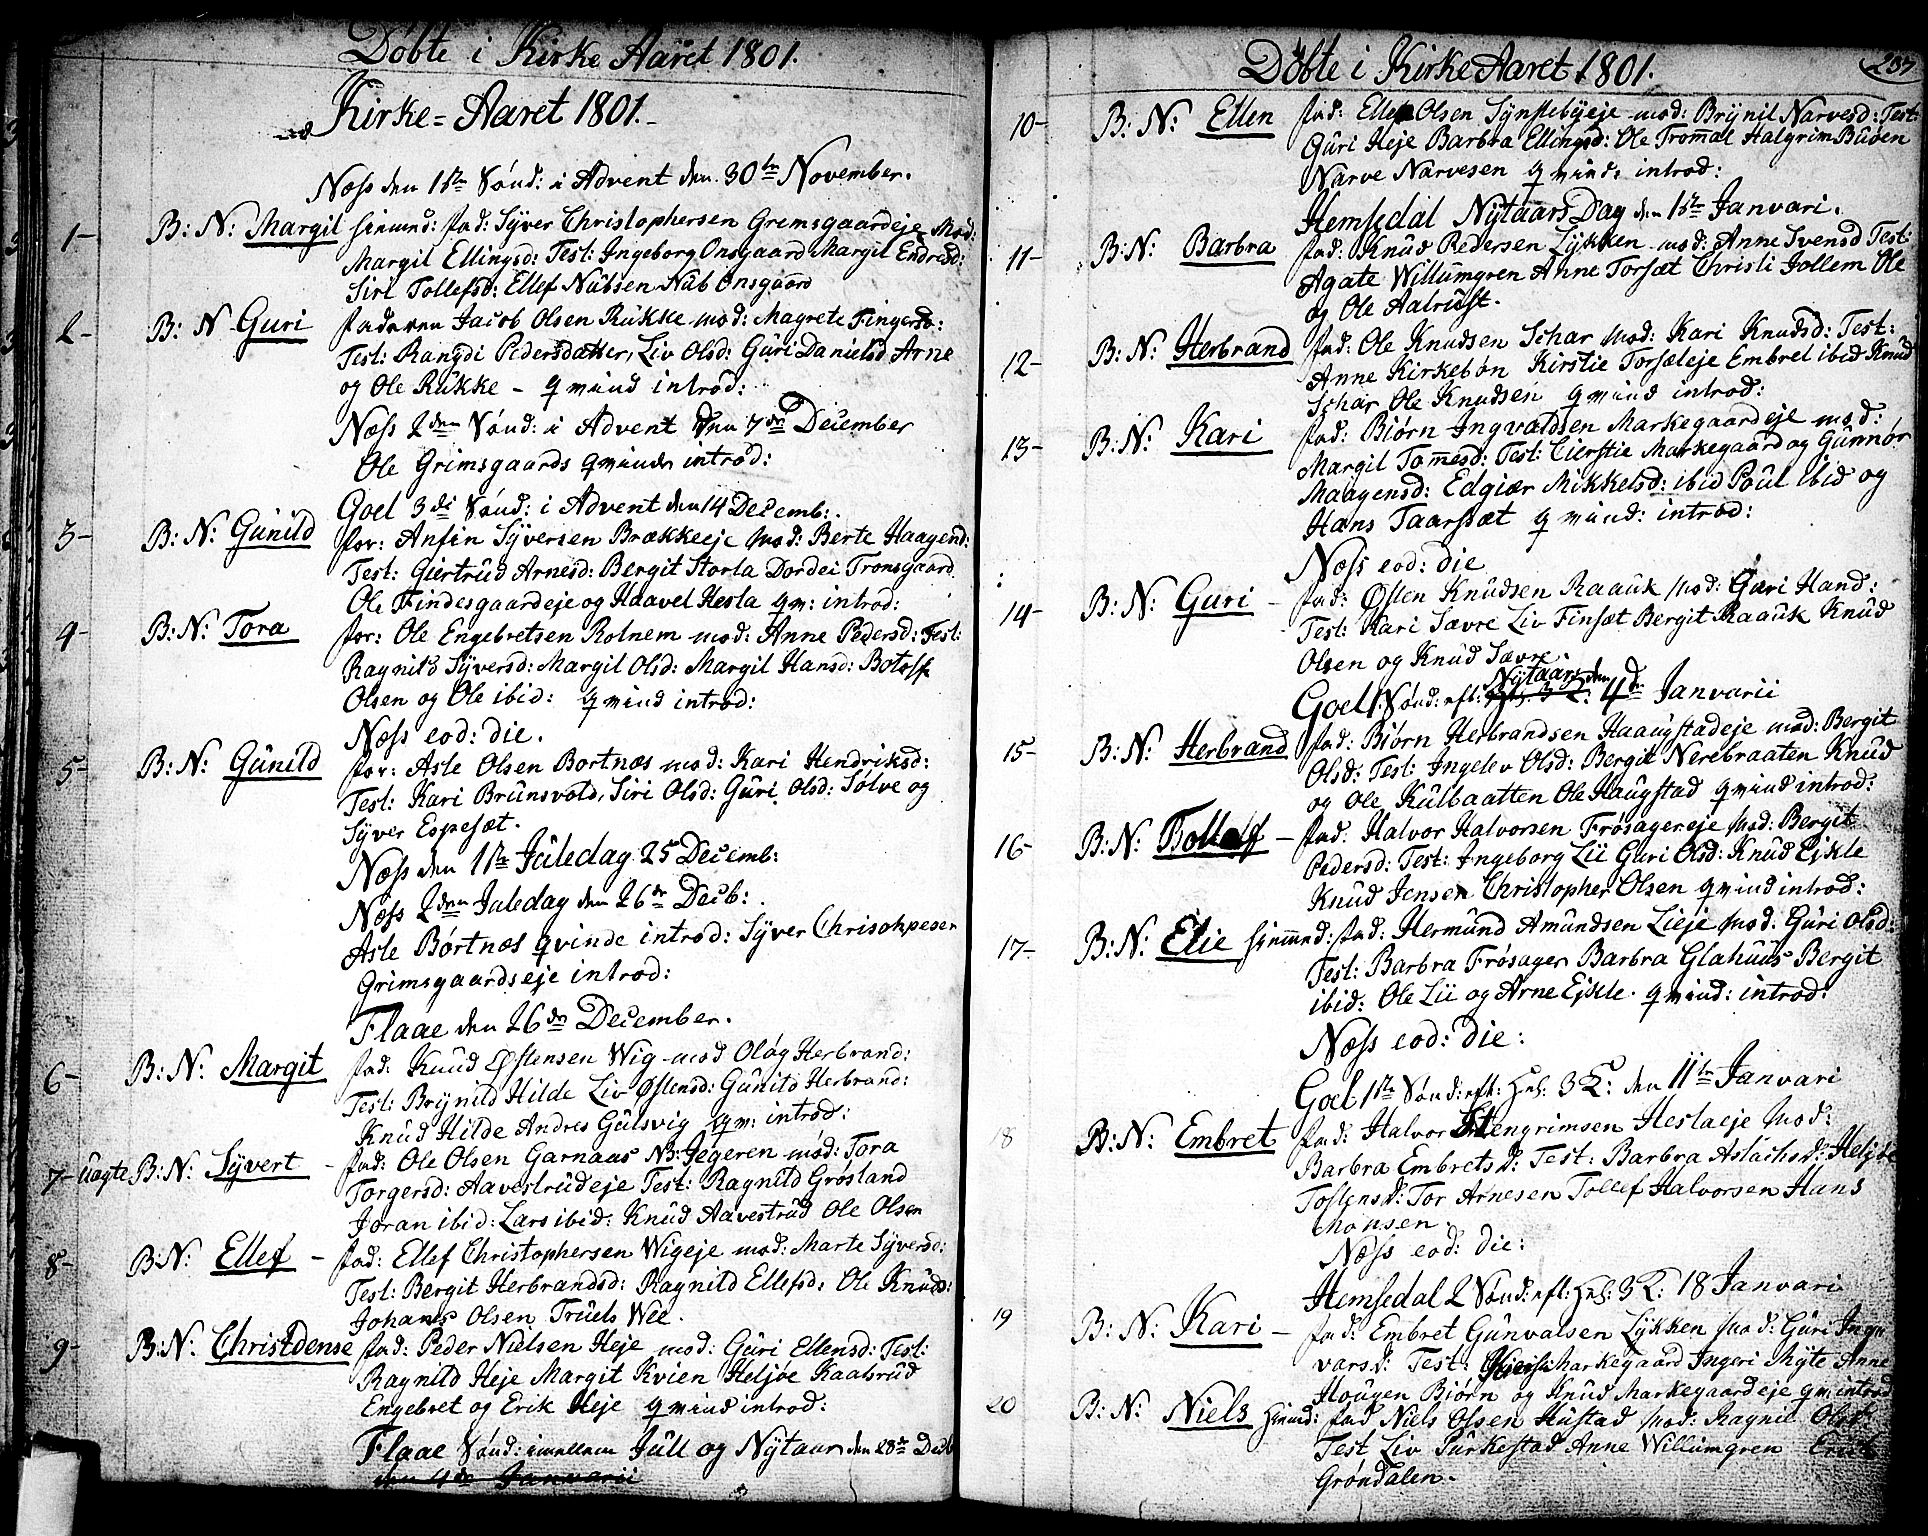 Döbte i Kirke Aaret 1801.
Kirke-Aaret 1801.
Næss den 1ste Sönd: i Advent den 30te November.
1- B: N: Margil hiemd: fad: Syver Christophersen Grimsgaardeje Mod:
Margil Ellingsd: Test: Ingeborg Onsgaard Margil Endresd:
Siri Tollefsd: Ellef Nubsen Nub Onsgaard
2- B: N Guri faderen Jacob Olsen Rukke mod: Magrete Fingersd:
Test: Rangdi Pedersdatter, Liv Olsd: Guri Danielsd Arne
og Ole Rukke - qvind introd:
Næss 2den Sönd: i Advent den 7de December
Ole Grimsgaards qvinde introd:
Goel 3di Sönd: i Advent den 14 Decemb:.
3- B: N: Gunild for: Anfin Syversen Brækkeeje Mod: Berte Haagend:
Test: Giertrud Arnesd: Bergit Storla Dordei Tronsgaard
Ole Findesgaardeje og Haavel Hesla qv: introd:
4- B: N: Tora for: Ole Engebretsen Rolnem mod: Anne Pedersd: Test:
Ragnild Syversd: Margil Olsd: Margil Hansd: Botolf
Olsen og Ole ibid: qvind introd:
Næss eod: die.
5- B: N: Gunild for: Asle Olsen Bortnæs mod: Kari Hendriksd:
Test: Kari Brunsvold, Siri Olsd: Guri Olsd: Sölve og
Syver Espesæt.
Næss den 1ste Juledag 25 Decemb:
Næss 2den Juledag den 26de Decb:.
Asle Börtnæs qvinde introd: Syver Chrisohpesen
Grimsgaardseje introd:
Flaae den 26de December.
6- B: N: Margit fad: Knud Østensen Wig mod Olög Herbrand:
Test: Brynild Hilde Liv Østensd: Gunild Herbrand:
Knud Hilde Andres Gulsvig qv: introd:
7- uægte B: N: Syvert - fad: Ole Olsen Garnaas NB: Jegeren mod: Tora
Torgersd: Aavestrudeje Test: Ragnild Grösland
Joran ibid: Lars ibid: Knud Aavestrud Ole Olsen
8- B: N: Ellef - fad: Ellef Christophersen Wigeje mod: Marte Syversd:
Test: Bergit Herbrandsd: Ragnild Ellefsd: Ole Knuds:
Johans Olsen Truels Wee.
9- B: N: Christdense fad: Peder Nielsen Heje mod: Guri Ellensd: Test:
Ragnild Heje Margit Kvien Heljöe Kaalsrud
Engebret og Erik Heje qvind introd:
Flaae Sönd: imellem Jull og Nytaar den 28de Decb
den 4de Januarii
Döbte i Kirke Aaret 1801.
287
10- B: N: Ellen fad: Ellef Olsen Synstebyeje mod: Brynil Narvesd: Test:
Guri Heje Barbra Ellingsd: Ole Trommal Halgrim Buöen
Narve Narvesen qvind: introd:
Hemsedal Nytaars Dag den 1ste Janvari.
11- B: N: Barbra fad: Knud Pedersen Lykken mod: Anne Svensd Test:
Agate Willumgren Anne Torsæt Christi Jollem Ole
og Ole Aalrust.
12- B: N: Herbrand fad: Ole Knudsen Schar Mod: Kari Knudsd: Test:
Anne Kirkebön Kirstie Torsæleje Embret ibid Knud
Schar Ole Knudsen qvind introd:
13- B: N: Kari fad: Biörn Ingvaldsen Markegaardeje mod:
Margil Tommesd: Test: Cierstie Markegaard og Gunnör
Maagensd: Edgiær Mikkelsd: ibid Poul ibid og
Hans Taarsæt qvind: introd:
Næss eod: die
14- B: N: Guri - fad: Østen Knudsen Raauk Mod: Guri Hand:
Test: Kari Sævre Liv Finsæt Bergit Raauk Knud
Olsen og Knud Sævre.
Goel 1. Sönd: eft: Nytaar den 4de Janvarii
15- B: N: Herbrand fad: Biörn Herbrandsen Haaugstadeje mod: Bergit
Olsd: Test: Ingelev Olsd: Bergit Nerebraaten Knud
og Ole Kulbaatten Ole Haugstad qvind introd:
16- B: N: Bottolf - fad: Halvor Halvorsen Frösagereje Mod: Bergit
Pedersd: Test: Ingeborg Lii Guri Olsd: Knud Ejkle
Knud Jensen Christopher Olsen qvind introd:
17- B: N: Elie hiemmed: fad: Hermund Amundsen Lieje Mod: Guri Olsd:
Test: Barbra Frösager Barbra Glahuus Bergit
ibid: Ole Lii og Arne Ejkle. qvind: introd:
Næss eod: die:
Goel 1ste Sönd: eft: Hel: 3 K: den 11te Janvari
18 B: N: Embret fad: Halvor Stengrimsen Heslaeje Mod:
Barbra Embretsd: Test: Barbra Aslachsd: Heljöe
Tostensd: Tor Arnesen Tollef Halvorsen Hans
Monsen.
Næss eod: die:
Hemsedal 2 Sönd: eft: Hel: 3 K: 18 Janvari
19 B: N: Kari - fad: Embret Gunvalsen Lykken Mod: Guri Ing
varsd: Test: Markegaard Ingeri Myte Anne
Hougen Biörn og Knud Markegaardeje qv introd
20 B: N: Niels hiemd: fad Niels Olsen Hustad Mod: Ragnil Olsd:
Test Liv Purkestad Anne Willumgren Erich
Gröndalen.